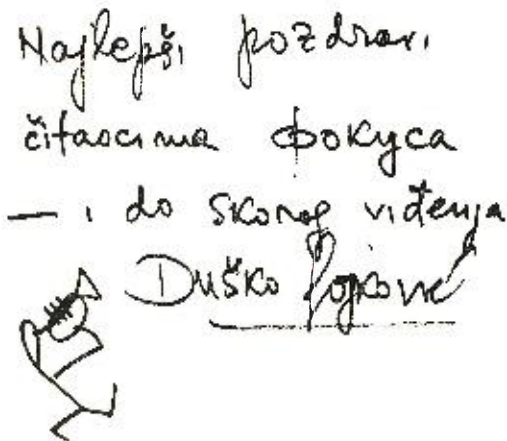 Najlepši pozdravi
čitaocima Фокуса
— i do skorog viđenja
Duško Gojković